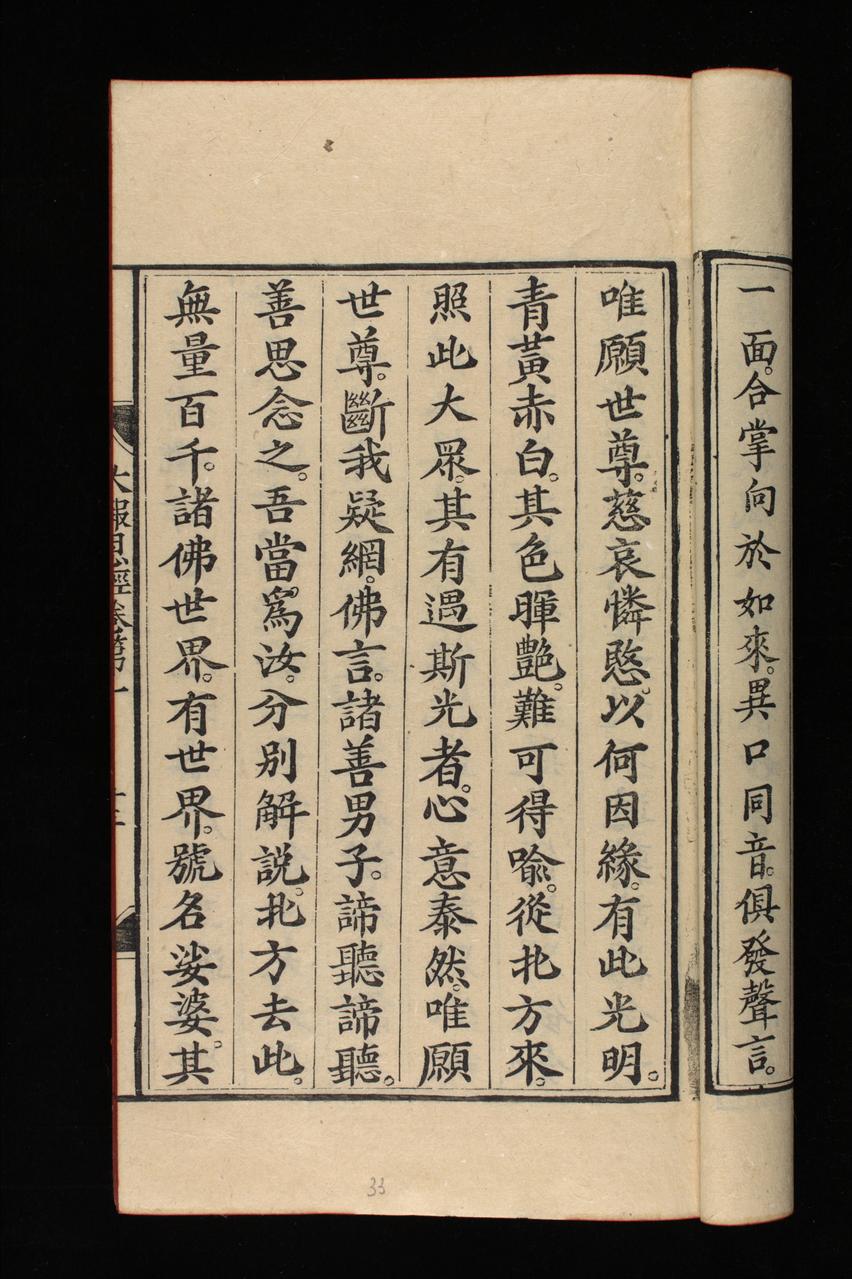 一面。合掌向於如來。異口同音。俱發聲言。
唯願世尊。慈哀憐愍。以何因緣。有此光明。
青黃赤白。其色暉艶。難可得喻。從北方來。
照此大眾。其有遇斯光者。心意泰然。唯願
世尊。斷我疑網。佛言。諸善男子。諦聽諦聽。
善思念之。吾當爲汝。分別解説。北方去此。
無量百千。諸佛世界。有世界。號名娑婆。其
大報恩經卷第一
33